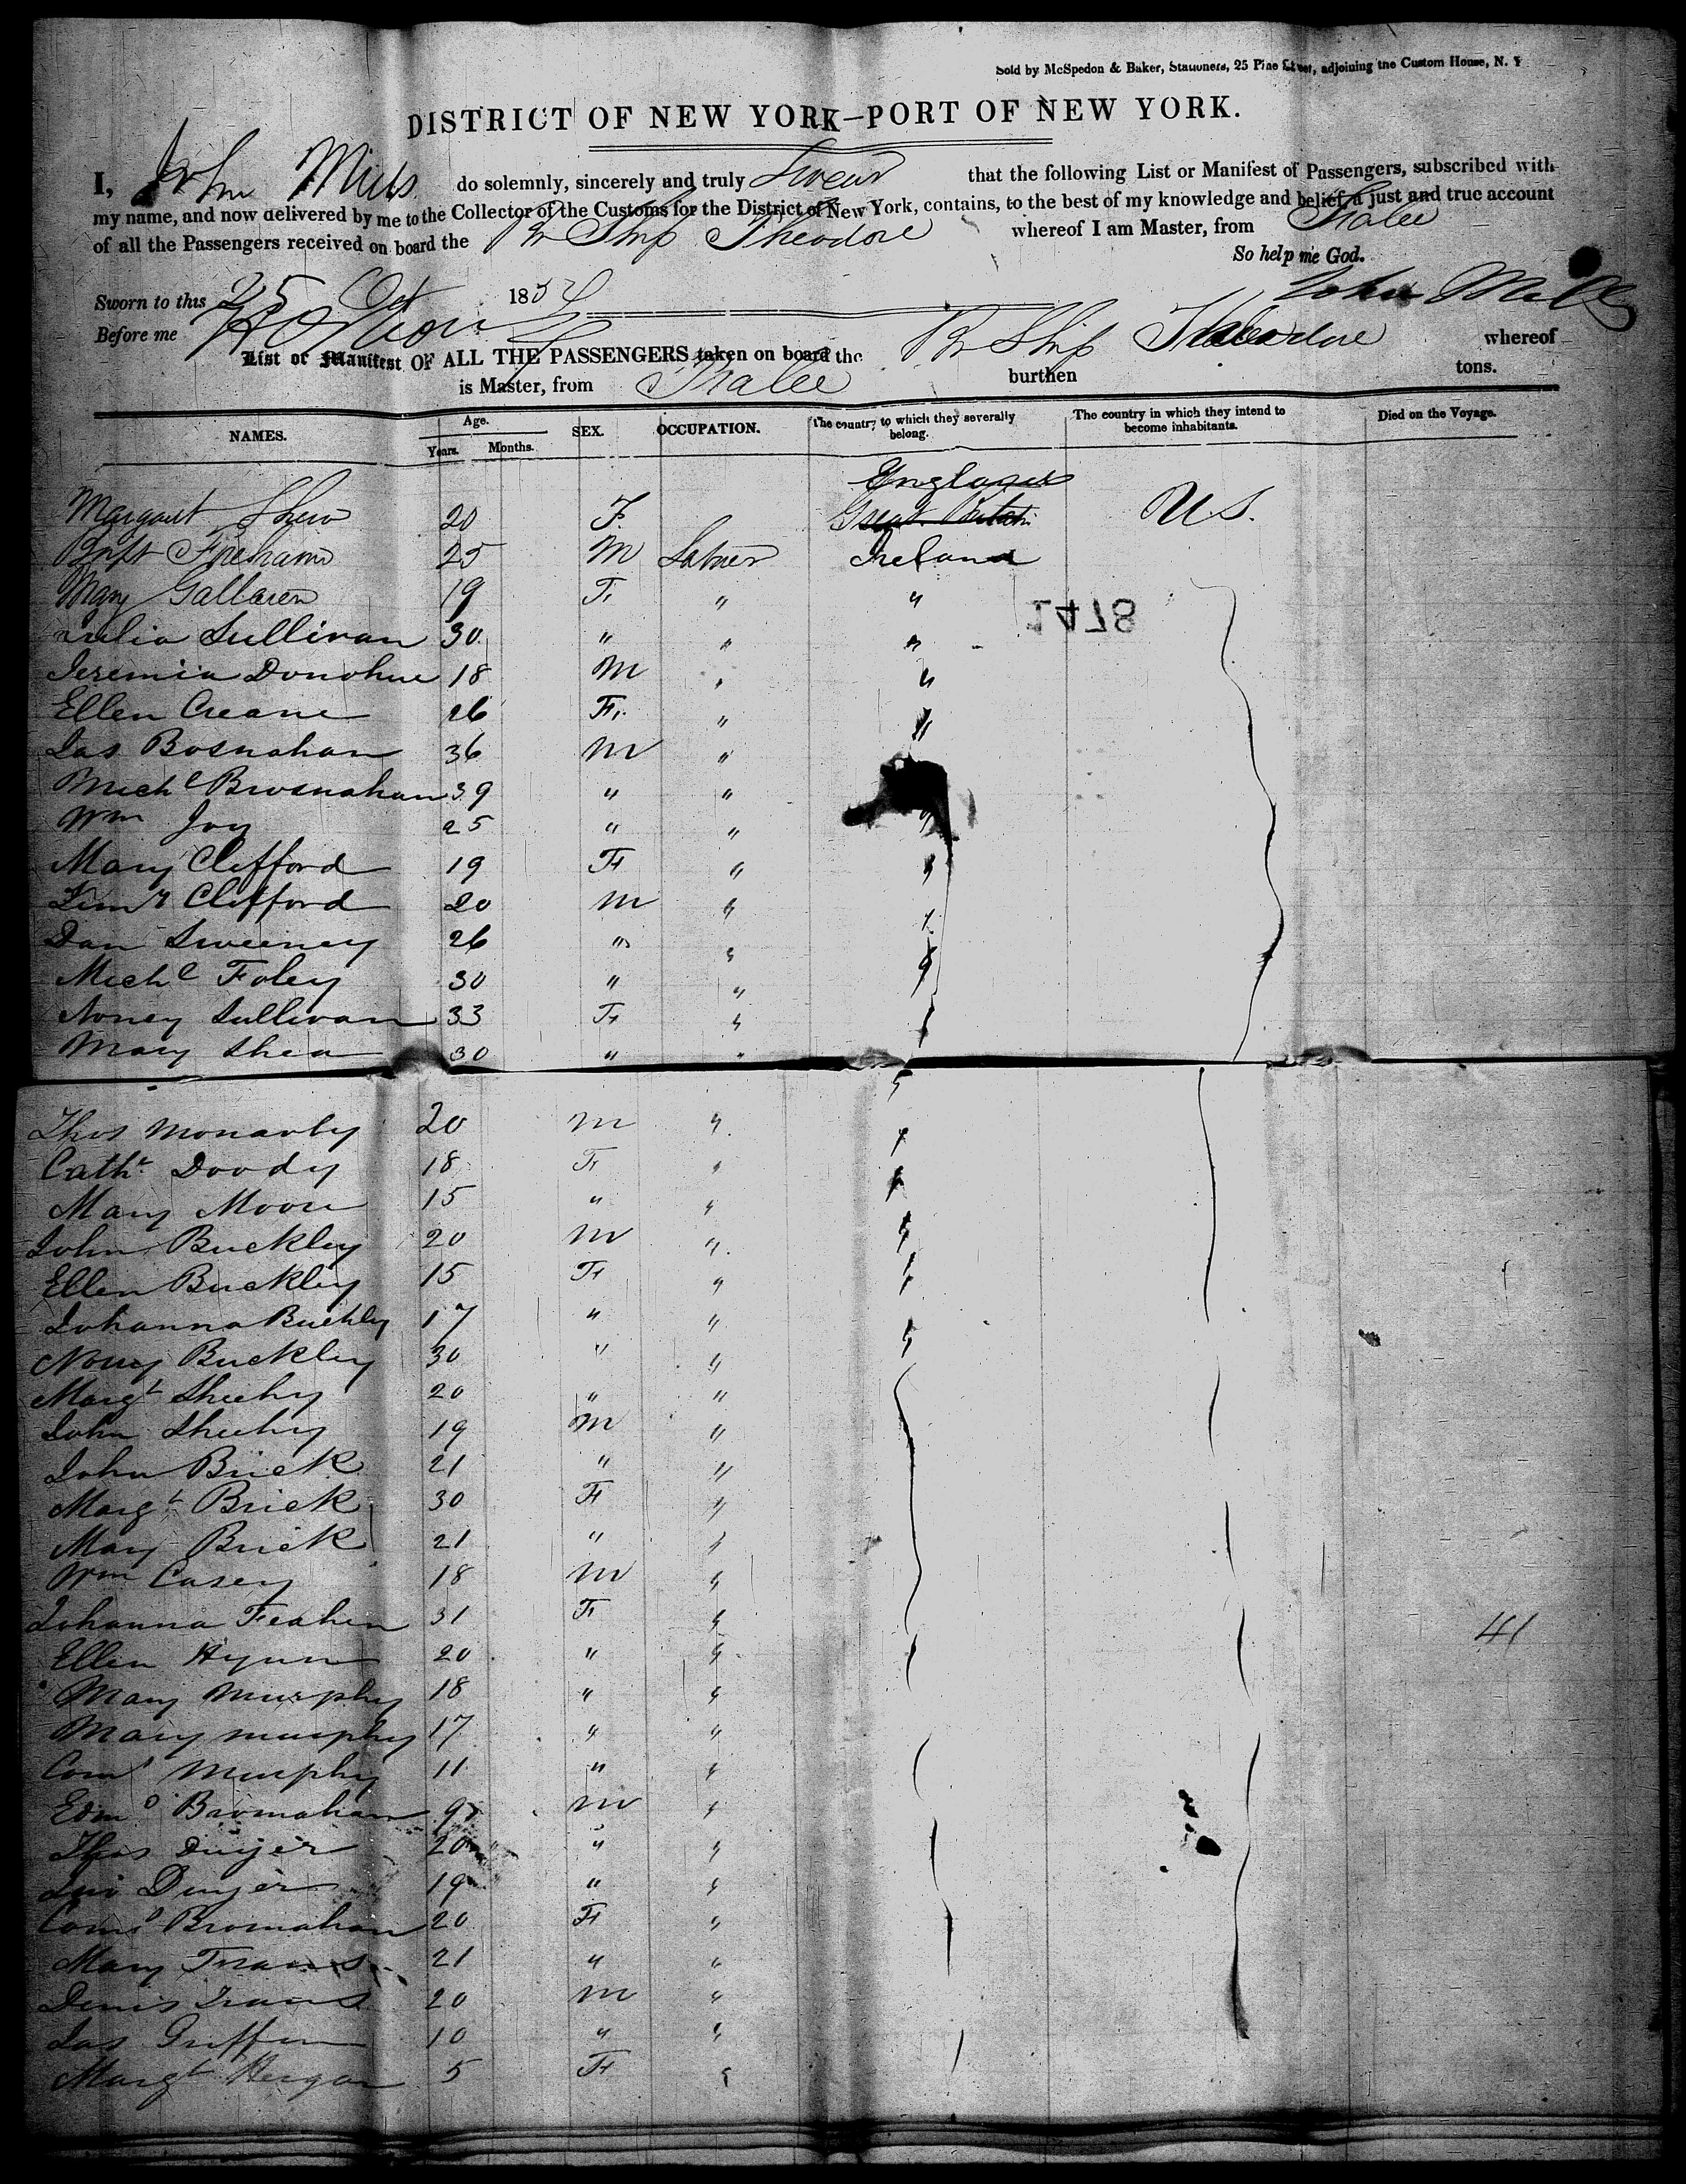 Sold by McSpedon & Baker, Stationers, 25 Pine Street, adjoining the Custom House, N. Y
DISTRICT OF NEW YORK—PORT OF NEW YORK.
I, John Mills do solemnly, sincerely and truly Swear that the following List or Manifest of Passengers, subscribed with
my name, and now delivered by me to the Collector of the Customs for the District of New York, contains, to the best of my knowledge and belief, a just and true account
of all the Passengers received on board the Br Ship Theodore whereof I am Master, from Tralee
So help me God.
Sworn to this 25 Oct 185 John Mills
Before me
List or Manifest OF ALL THE PASSENGERS taken on board the Br Ship Theodore whereof
is Master, from Tralee burthen tons.
NAMES. Age. Years. Months. SEX. OCCUPATION. The country to which they severally belong. The country in which they intend to become inhabitants. Died on the Voyage.
England
Margaret Shew 20 F. Great Britain U.S.
25 M Labner Ireland
Mary 19 F. " "
Julia Sullivan 30 " " "
Jeremia Donohue 18 M " "
Ellen Creane 26 F. " "
1478
Jas Bosnahan 36 M "
Mich l Brosnahan 39 " "
Wm Joy 25 " " "
Mary Clifford 19 F " "
Timy Clifford 20 M " "
Dan Sweeney 26 " " "
Mich l Foley 30 " " "
Noney Sullivan 33 F "
Mary Shea 30 " " "
Thos 20 M " "
Cath t Doody 18 F " "
Mary Moore 15 " " "
John Buckley 20 M " "
Ellen Buckley 15 F " "
Johanna Buckley 17 " " "
Noney Buckley 30 " "
Marg t Sheehy 20 " "
John Sheehy 19 M "
John Brick 21 " "
Marg t Brick 30 F "
Mary Brick 21 " "
Wm Casey 18 M "
Johanna Feahen 31 F " 41
Ellen 20 " "
Mary Murphy 18 " "
Mary Murphy 17 " "
Murphy 11 " "
Edm d 9 M "
Thos Dwyer 20 " "
Dwyer 19 " "
20 F "
Mary 21 " "
Denis 20 M "
Jas Griffin 10 " "
Marg t 5 F "